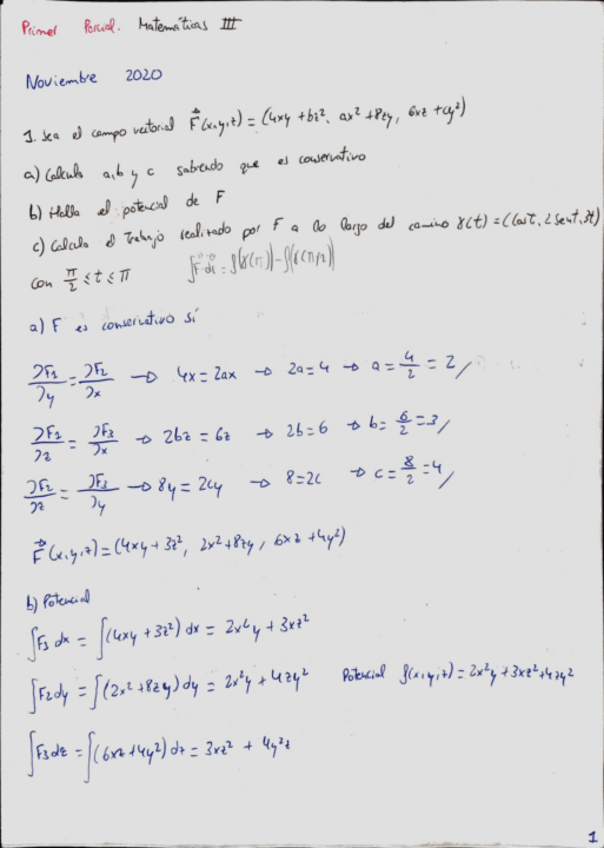 Primer Parcial. Matemáticas III
Noviembre 2020
1. Sea el campo vectorial F⃗(x,y,z) = (4xy + bz², ax² + 8zy, 6xz + cy²)
a) Calcula a, b y c sabiendo que es conservativo
b) Halla el potencial de F
c) Calcula el Trabajo realizado por F a lo largo del camino γ(t) = (cos t, 2 sent, 3t)
con π/2 ≤ t ≤ π ∫F⃗ dr⃗ = f(γ(π)) - f(γ(π/2))
a) F es conservativo si
∂F1/∂y = ∂F2/∂x → 4x = 2ax → 2a = 4 → a = 4/2 = 2
∂F1/∂z = ∂F3/∂x → 2bz = 6z → 2b = 6 → b = 6/2 = 3
∂F2/∂z = ∂F3/∂y → 8y = 2cy → 8 = 2c → c = 8/2 = 4
F⃗(x,y,z) = (4xy + 3z², 2x² + 8zy, 6xz + 4y²)
b) Potencial
∫F1 dx = ∫(4xy + 3z²) dx = 2x²y + 3xz²
∫F2 dy = ∫(2x² + 8zy) dy = 2x²y + 4zy² Potencial f(x,y,z) = 2x²y + 3xz² + 4zy²
∫F3 dz = ∫(6xz + 4y²) dz = 3xz² + 4y²z
1